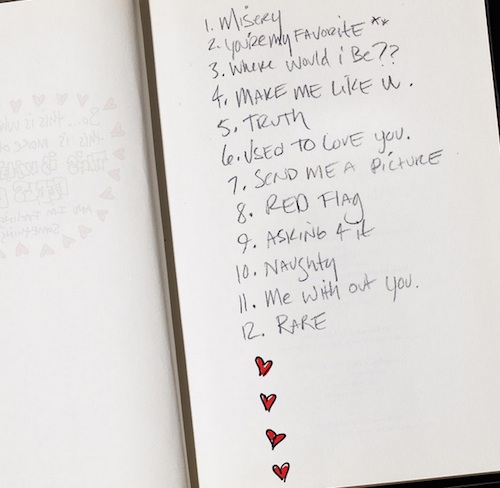 1. Misery
2. You're my FAVORITE **
3. Where Would i Be??
4. MAKE ME LIKE U.
5. TRUTH
6. USED TO LOVE YOU.
7. SEND ME A PICTURE
8. RED Flag
9. ASKING 4 it
10. NAUghty
11. Me With out you.
12. RARE